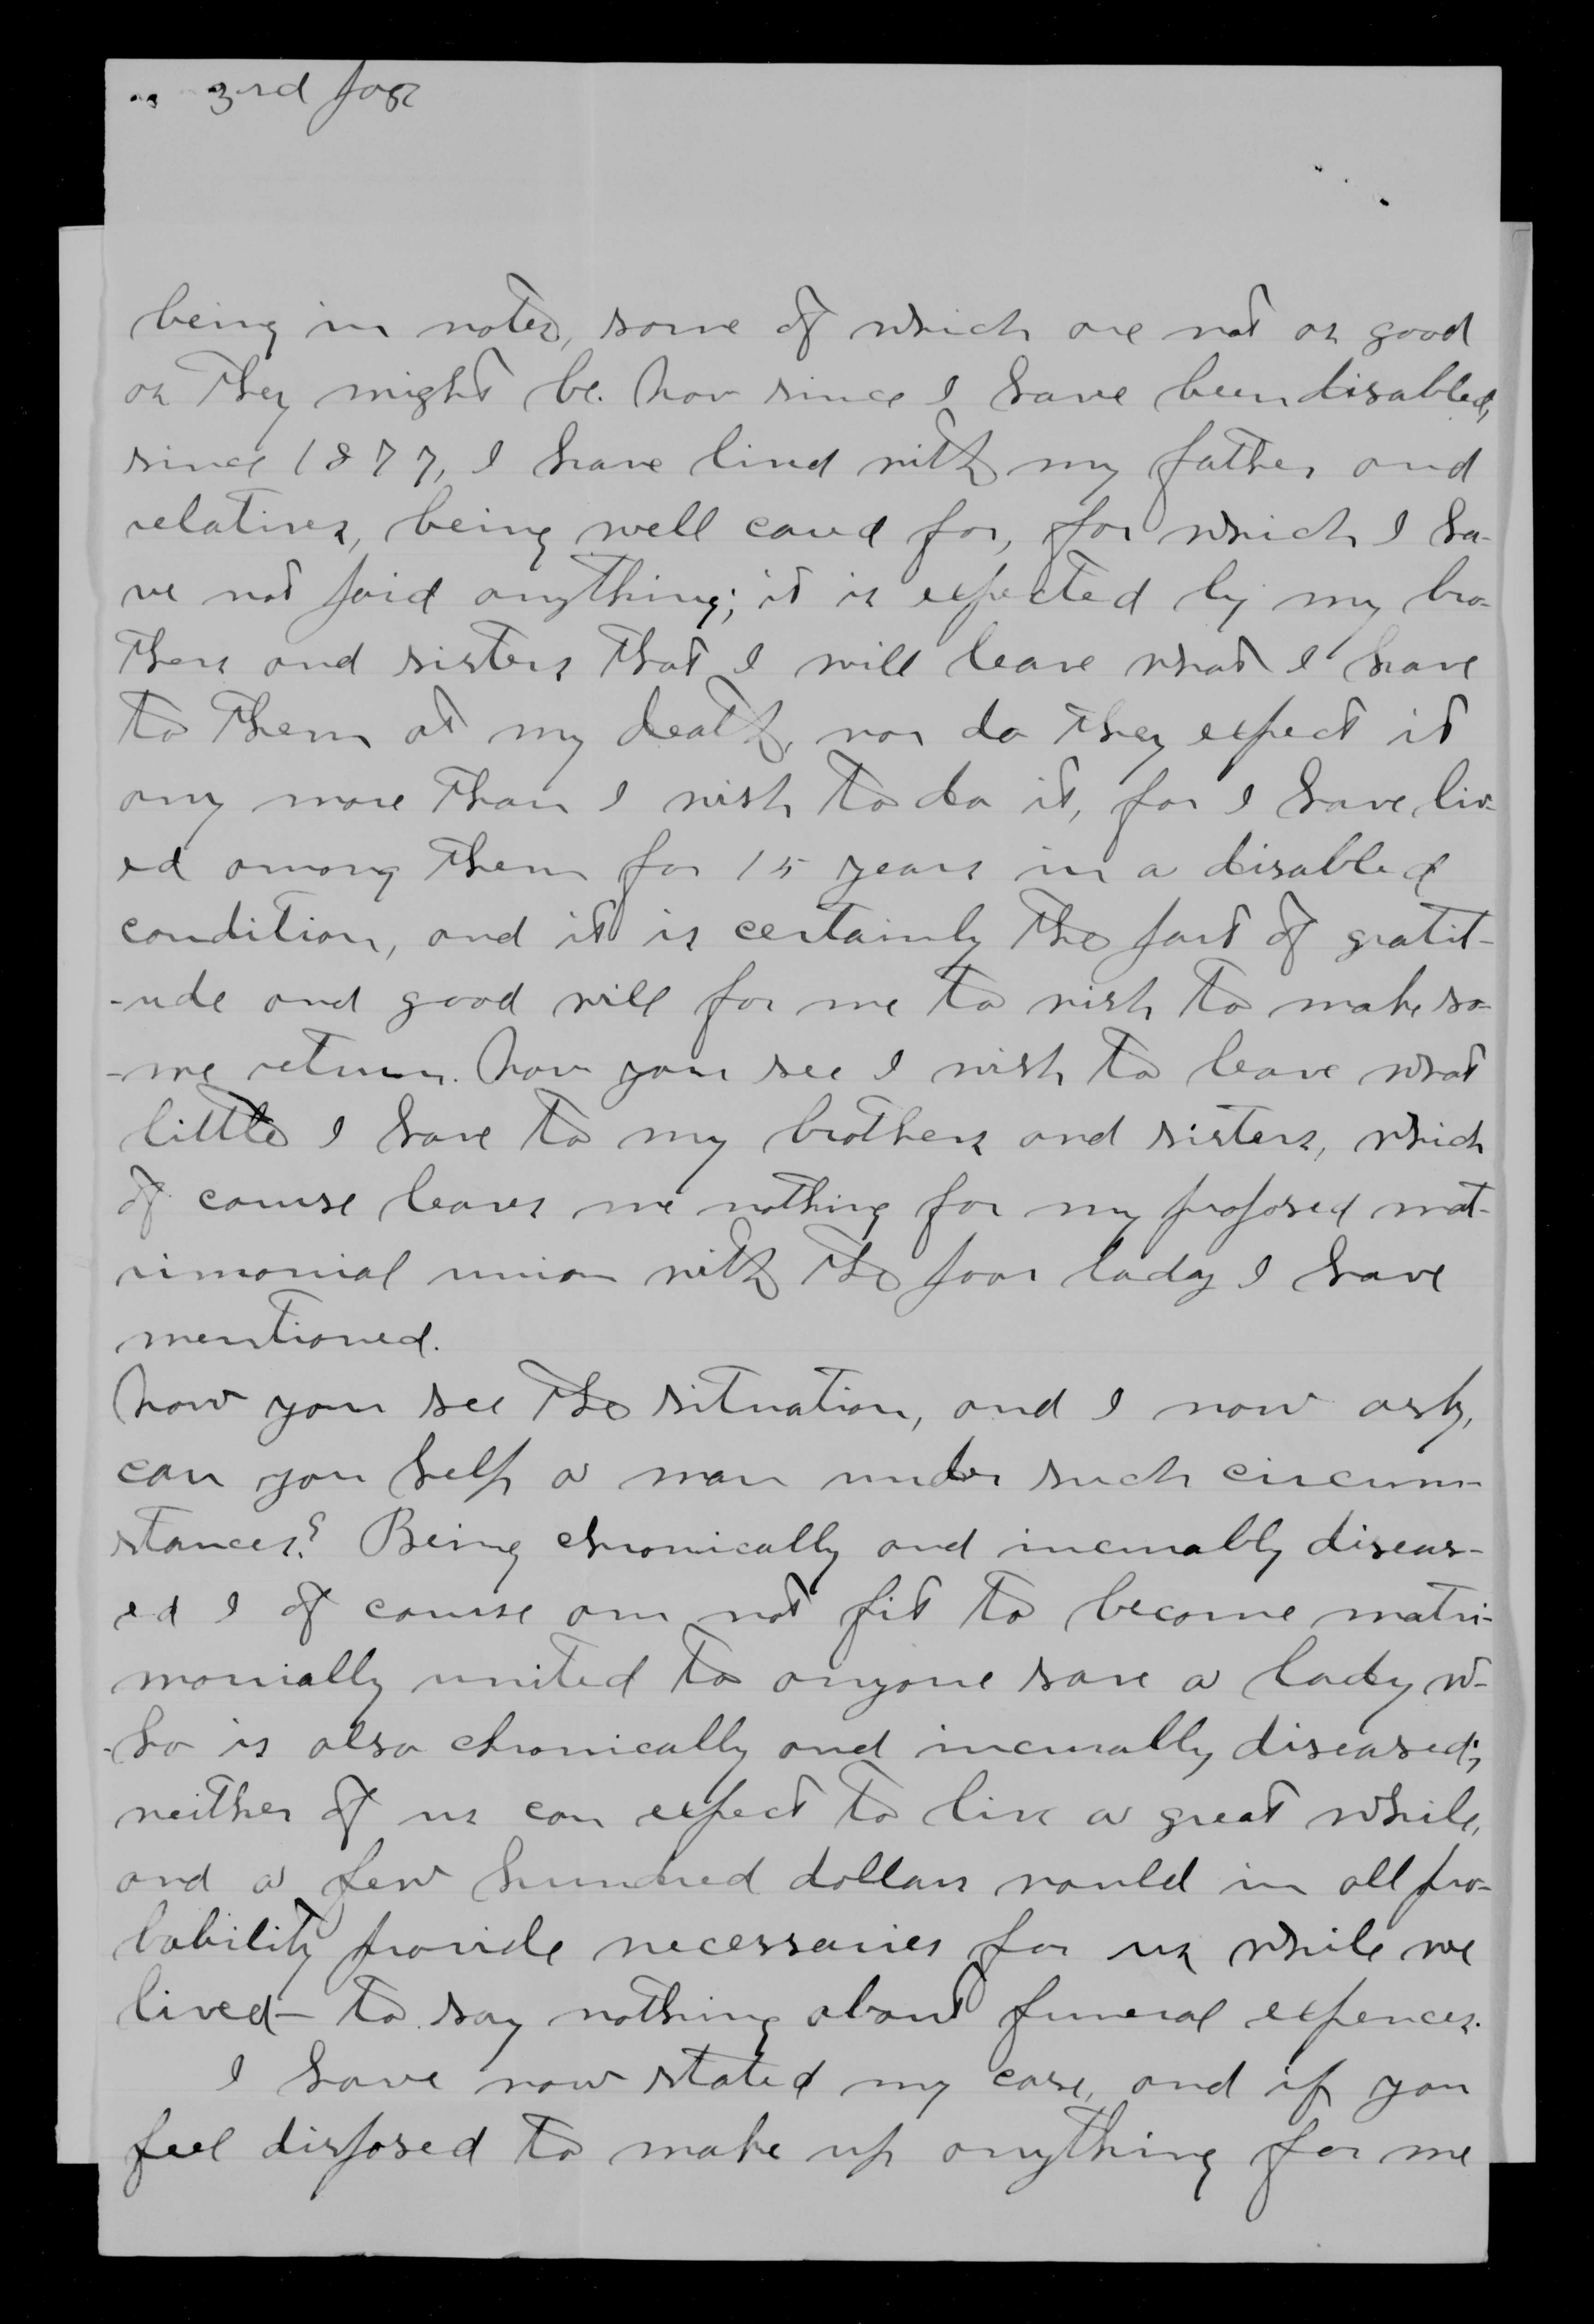 3rd page
being in notes, some of which are not as good
as they might be. Now since I have been disabled,
since 1877, I have lived with my father and
relatives, being well cared for, for which I ha-
ve not paid anything; it is expected by my bro-
thers and sisters that I will leave what I have
to them at my death, nor do they expect it
any more than I wish to do it, for I have liv-
ed among them for 15 years in a disabled
condition, and it is certainly the part of gratit-
-ude and good will for me to wish to make so-
-me return. Now you see I wish to leave what
little I have to my brothers and sisters, which
of course leaves me nothing for my proposed mat-
rimonial union with the poor lady I have
mentioned.
Now you see the situation, and I now ask,
can you help a man under such circum-
stances? Being chronically and incurably diseas-
ed I of course am not fit to become matri-
monially united to anyone save a lady w-
-ho is also chronically and incurably diseased;
neither of us can expect to live a great while,
and a few hundred dollars would in all pro-
bability provide necessaries for us while we
lived - to say nothing about funeral expences.
I have now stated my case, and if you
feel disposed to make up anything for me